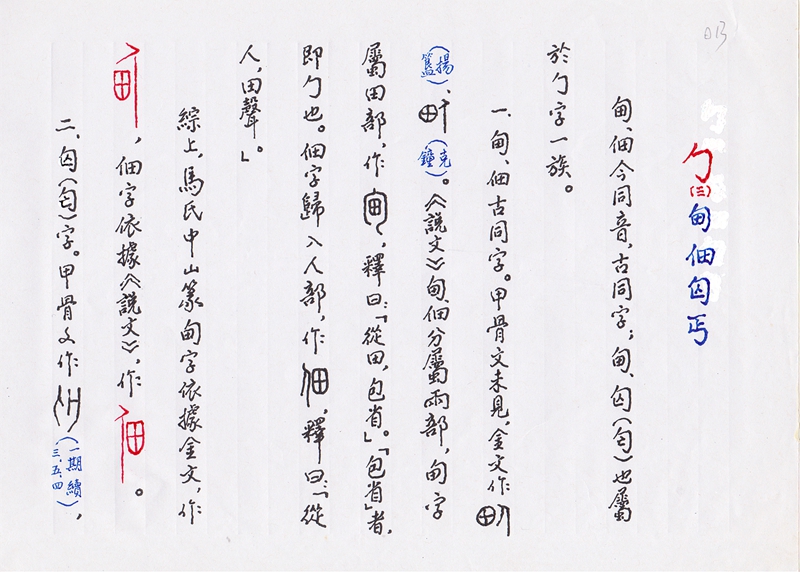 013
勹(三)甸佃匃丐
甸、佃今同音,古同字;甸、匃(匄)也屬
於勹字一族。
一、甸、佃古同字。甲骨文未見,金文作
(揚簋)、(克鐘)。《說文》甸、佃分屬兩部,甸字
屬田部,作,釋曰:「從田,包省」。「包省」者,
即勹也。佃字歸入人部,作,釋曰:「從
人,田聲。」
綜上,馬氏中山篆甸字依據金文,作
,佃字依據《說文》,作。
二、匃(匄)字。甲骨文作(一期續三、五、四),